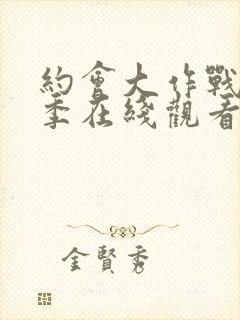 約會大作戰
季在綫觀看
金賢秀